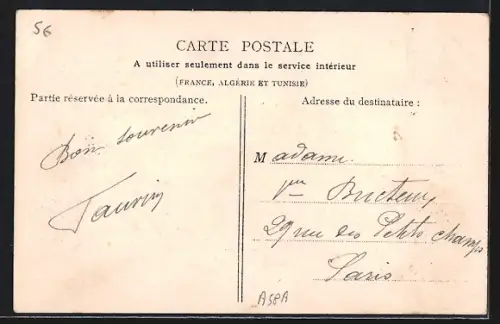 56
CARTE POSTALE
A utiliser seulement dans le service intérieur
(FRANCE, ALGÉRIE ET TUNISIE)
Partie réservée à la correspondance.
Adresse du destinataire :
Bon souvenir
Madame
29 rue des Petits champs
Paris